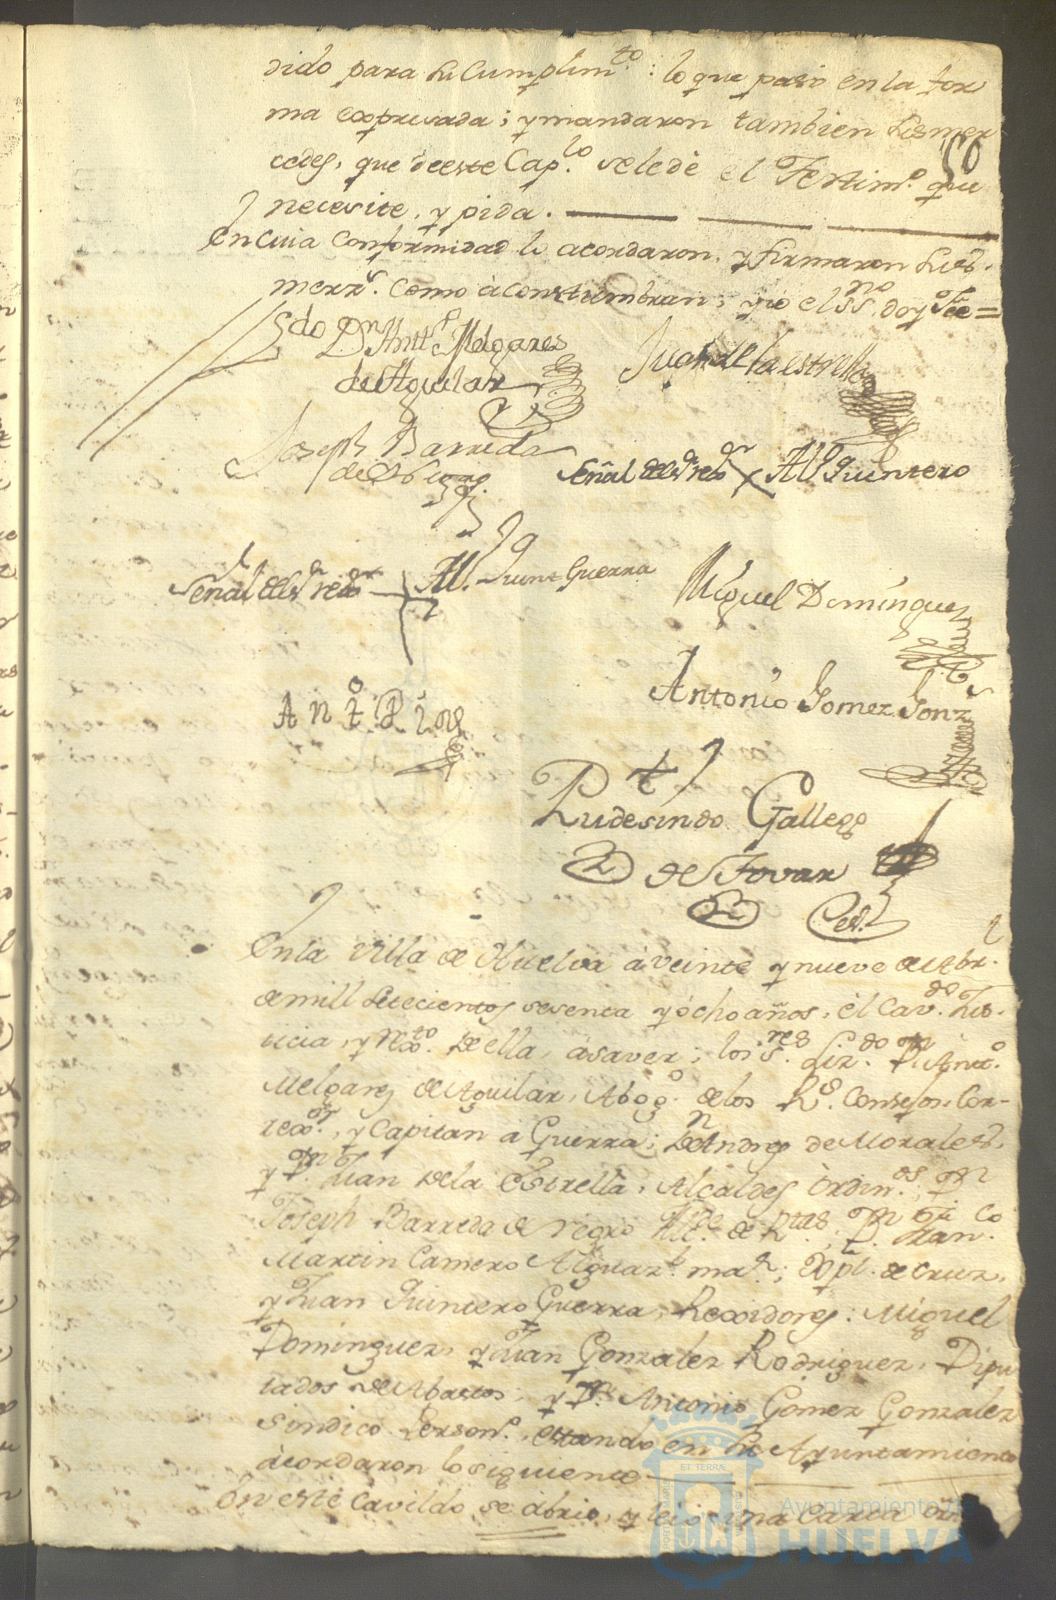 dido para su Cumplim.to: lo que pasó en la for
ma expresada; y mandaron tambien sus mer
50
cedes, que de este Cap.lo se le dè el Testim.o que
necesite, y pida.
En cuia Conformidad lo acordaron, y firmaron sus
merz.s como àcostumbran; yo el ss.no doy Fee=
Lz.do Dn Antt.o Melgares
de Aguilar
Juan de la estrella
Joseph Barreda
Señal del s.r red.or X Al.o quintero
Señal del s.r red.or + Al. Juint Guerra
Miguel Dominguez
Antonio Gomez Gonz
Ant.o
Rudesindo Gallego
de Tovar
En la Villa de Huelva à veinte y nueve de Abr.
de mill setecientos sesenta y ócho años, el Cav.do Jus-
ticia, y Rex.to de ella, àsaver; los s.res Liz.do Dn Ant.o
Melgarez de Aguilar, Abog.o de los R.s Consejos, Cor-
rex.or, y Capitan à Guerra; Dn Andres de Morales,
y Dn Juan de la Estrella, Alcaldes Òrdin.os, Dn
Joseph Barreda de Negro Alc.de de R.tas, Dn Fran.co
Martin Camero Alguaz.l ma.r; de Cruz,
y Juan Quintero Guerra, Rexidores: Miguel
Dominguez, y Juan Gonzalez Rodriguez, Dipu
tados de Abastos, y Dn Antonio Gomez Gonzalez
Sindico Person.o, estando en su Ayuntamiento
àcordaron lo siguiente
En este Cavildo se àbrio, y leió una Carta
Ayuntamiento de
HUELVA